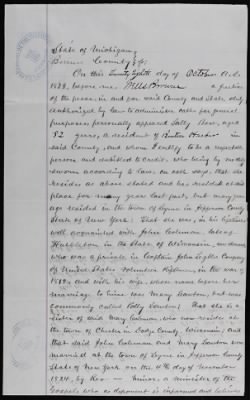 State of Michigan
County } ss.
On this twenty eighth day of October A.D.
1878, before me, a Justice
of the peace, in and for said County and State duly
authorized by law to administer oaths for general
purposes personally appeared Sally aged
82 years, a resident of Benton Harbor in
said County, and whom I certify to be a respectable
person and entitled to credit, who being by me duly
sworn according to law, on oath says, that she
resides as above stated and has resided at said
place for many years last past, but many years
ago resided in the town of Lyme in Jefferson County
State of New York: That she was, in his lifetime
well acquainted with John Coleman, late of
in the State of Wisconsin, and
who was a private in Captain John Company
of United States Volunteer in the war of
1812, and with his wife, whose name before her
marriage, to him was Mary but was
commonly called That she is a
sister of said Mary Coleman, who now resides at
the town of Chester in Dodge County, Wisconsin; and
that said John Coleman and Mary were
married at the town of Lyme in Jefferson County
State of New York, on the day of November
1814, by Rev — Minor, a minister of the
Gospel, who as deponent is informed and believes